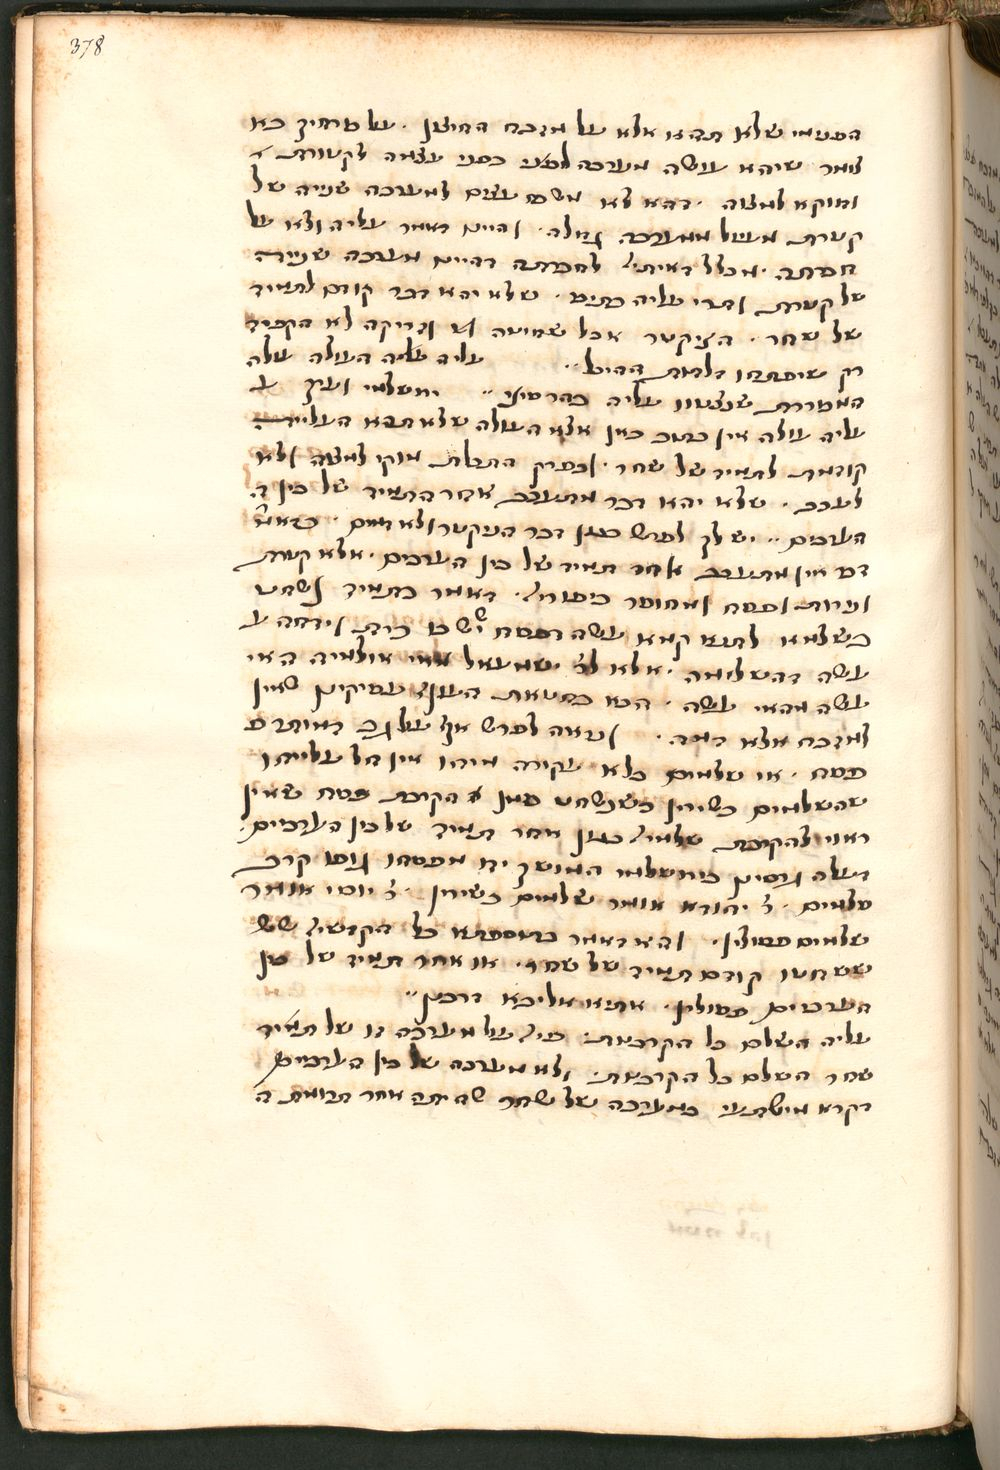 378
הפנימי שלא תהא אלא על מזבח החיצון . על מרחיק בא
לומר שיהא עושה מערכה לפני כפני עצמה לקטורת
ומוקא למצוה . דהא לא משם עצים למערכה שנייה של
קטרת מעיל ממערכה גדולה . והיינו דאמר עליה ולא על
חברתה . מכלל דאית לי׳ לחברתה דהיינו מערכה שנייה
של קטרת והרי עליה כתיב . שלא יהא דבר קודם לתמיד
של שחר . הציקטר אבל שחיטה או וזריקה לא הקפיד
רק שיפתחו דלתות ההיכל .. עליה עליה העולה עולה
האמורות שנצטוו עליה בהר סיני .. ירושלמי ועיין ע
עליה עולה אין כתוב כאן אלא העולה שלא תהא העליה
קודמת לתמיד של שחר . ובפרק התכלת מוקי למצוה ולא
לעכב . שלא יהא דבר מתעכב אחר התמיד של בין ה
הערבים .. יש לך לפרש כגון דבר הניקטר ולא דמים .
דם אין מתעכב אחר תמיד של בין הערבים . אלא קטרת
ונירות ופסח ומחוסר כיפורי׳ . דאמר בתמיד נשחט
בשלמא לתנא קמא עשה דפסח שיש בו כרת וידחה ע
עשה דהשלמה . אלא לר׳ ישמעאל מאי אולמיה האי
עשה מהאי עשה . הכא בחטאת העוף עסיקינן שאין
למזבח אלא דמה . ונראה לפרש אף על גב דמותרם
פסח . או שלמים בלא עקירה מיהו אין חל עלייהו
שהשלמים כשירין כשנשחט סמן הקרבת פסח שאין
ראוי להקרבת שלמי׳ כגון אחר תמיד של בין הערבים
דעלה גרסינן בירושלמי המושך ידו מפסחו גופו קרב
שלמים . ר׳ יהודא אומר שלמים כשירין . ר׳ יוסי אומר
שלמים פסולין . והא דאמר בתוספתא כל הקדשי׳ שש
ששחטו קודם תמיד של שחר . או אחר תמיד של בין
הערבים פסולין . אתיא אליבא דרבנן ..
עליה השלם כל הקרבנות . פי׳ על מערכה זו של תמיד
שחר השלם כל הקרבנות . ולא מערכה של בין הערבים
דקרא מישתעי במערכה של שחר שהיתה אחר תרומת ה